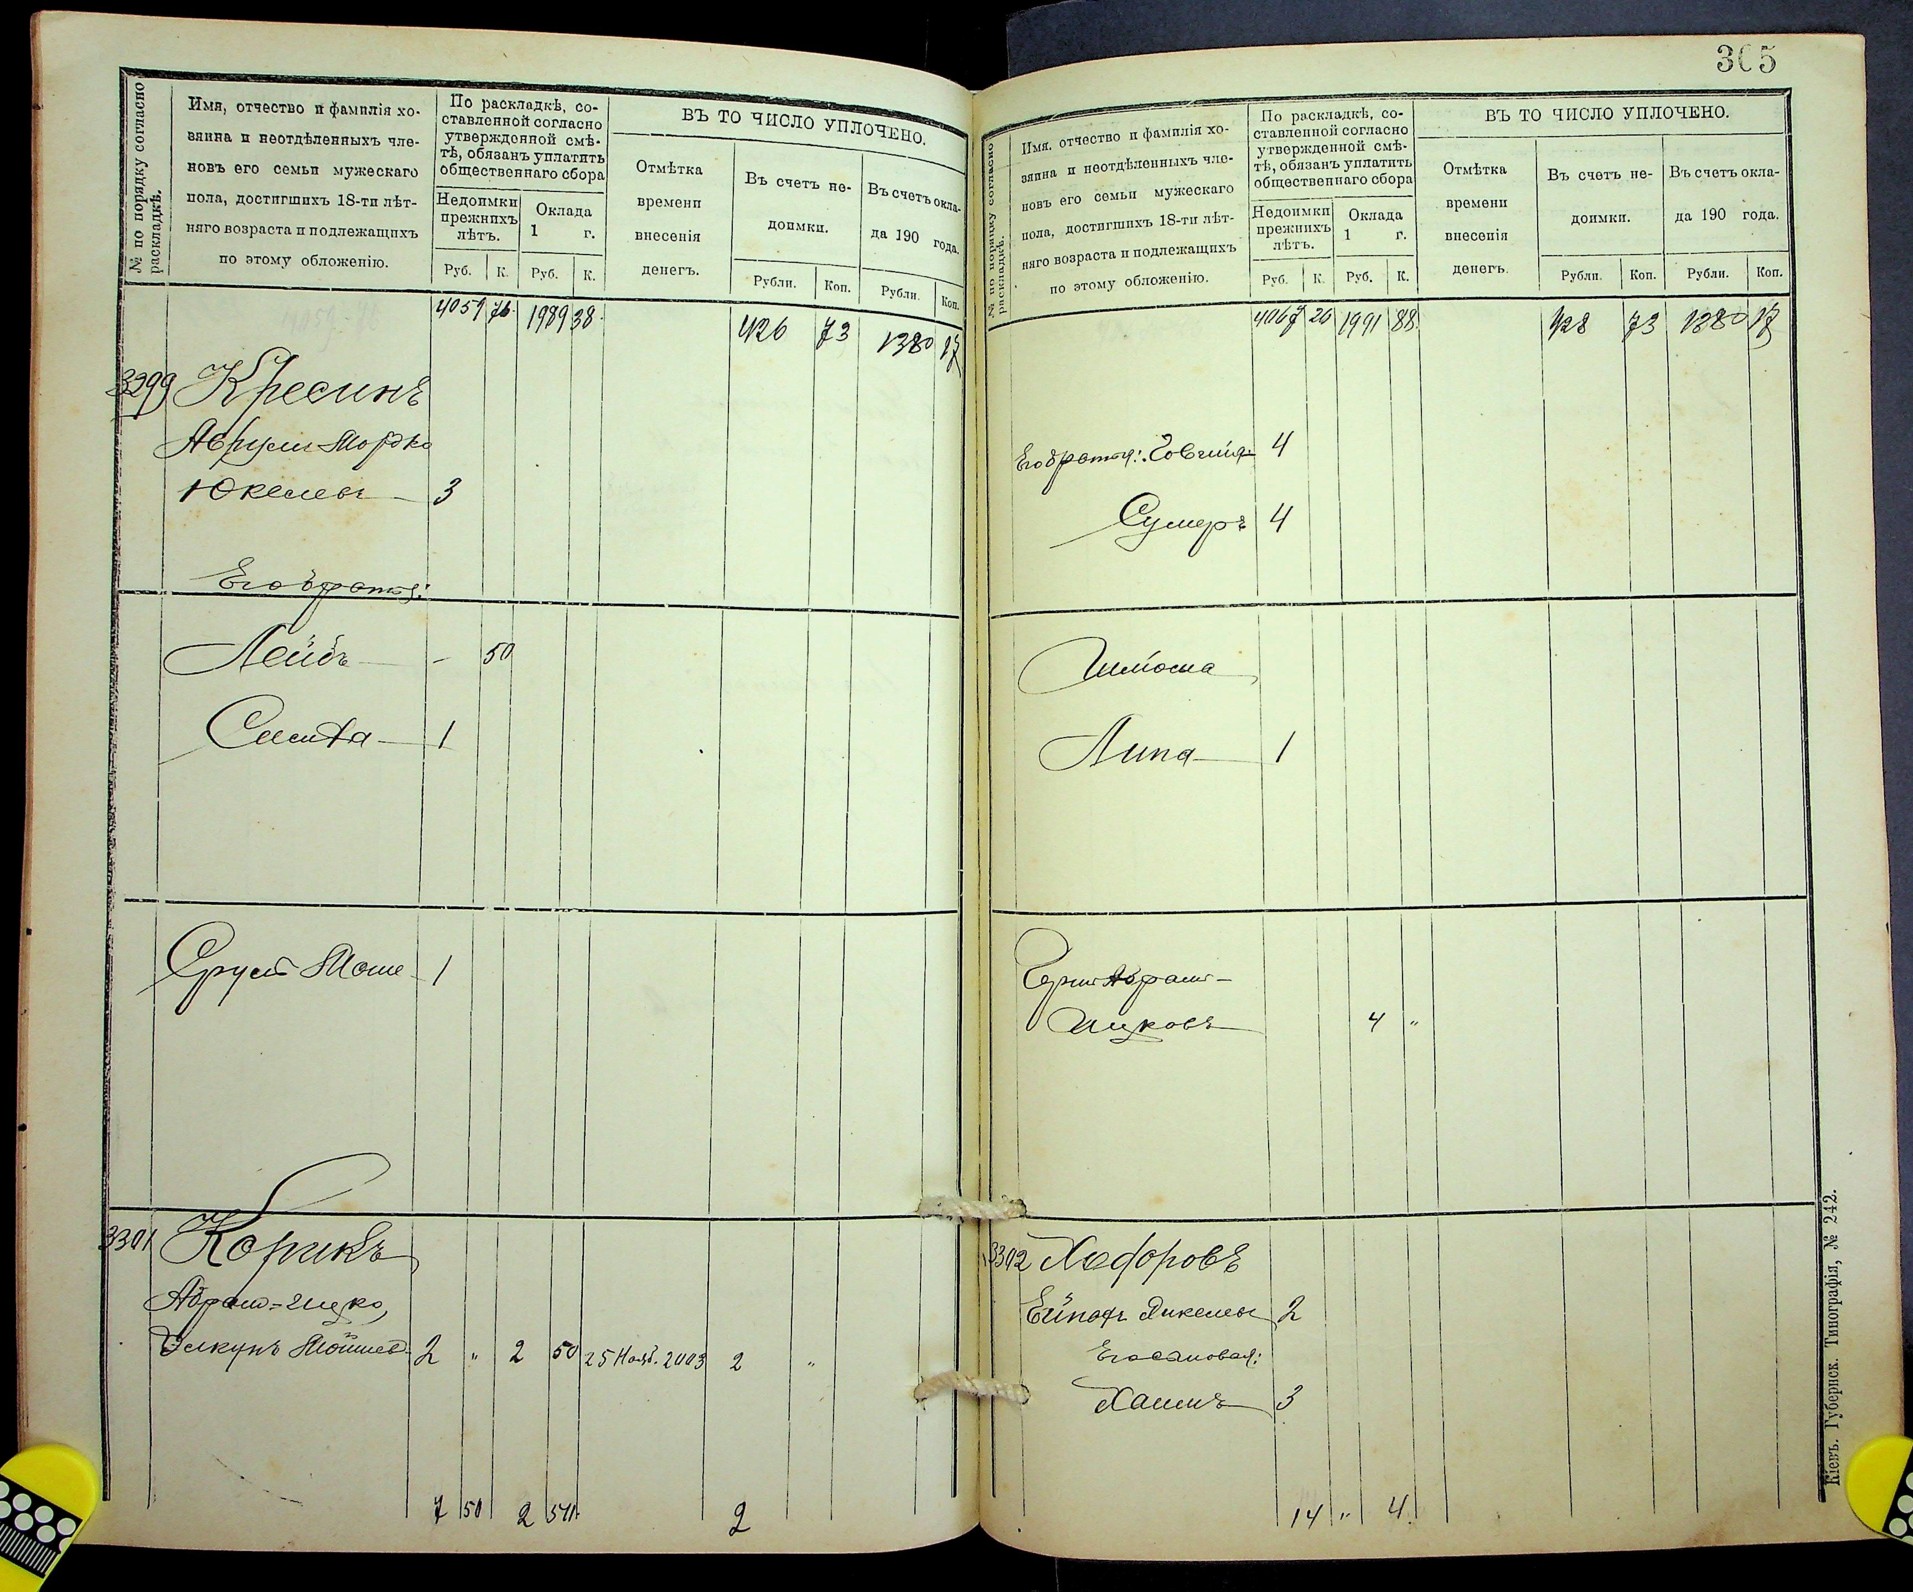 № по порядку согласно раскладкѣ.
Имя, отчество и фамилія хо-
зяина и неотдѣленныхъ чле-
новъ его семьи мужескаго
пола, достигшихъ 18-ти лѣт-
няго возраста и подлежащихъ
по этому обложенію.
По раскладкѣ, со-
ставленной согласно
утвержденной смѣ-
тѣ, обязанъ уплатить
общественнаго сбора
Недоимки
прежнихъ
лѣтъ.
Оклада
1 г.
Руб. К. Руб. К.
ВЪ ТО ЧИСЛО УПЛОЧЕНО.
Отмѣтка
времени
внесенія
денегъ.
Въ счетъ не-
доимки.
Въ счетъ окла-
да 190 года.
Рубли. Коп. Рубли. Коп.
4059 76 1989 38 426 73 1380 17
3299 Кресинъ
Аврумъ Мордко
Юкелевъ 3
Его братья:
Лейбъ - 50
1
Сруль Моше 1
3301 Корикъ
Абрам=Ицко,
Элкунъ Мошковъ 2 " 2 50 25 Нояб. 2003 2 "
7 50 2 50 2
305
№ по порядку согласно раскладкѣ.
Имя, отчество и фамилія хо-
зяина и неотдѣленныхъ чле-
новъ его семьи мужескаго
пола, достигшихъ 18-ти лѣт-
няго возраста и подлежащихъ
по этому обложенію.
По раскладкѣ, со-
ставленной согласно
утвержденной смѣ-
тѣ, обязанъ уплатить
общественнаго сбора
Недоимки
прежнихъ
лѣтъ.
Оклада
1 г.
Руб. К. Руб. К.
ВЪ ТО ЧИСЛО УПЛОЧЕНО.
Отмѣтка
времени
внесенія
денегъ.
Въ счетъ не-
доимки.
Въ счетъ окла-
да 190 года.
Рубли. Коп. Рубли. Коп.
4067 26 1991 88 428 73 1380 17
Его братья: 4
Сумеръ 4
Шліома
Липа 1
Герш Абрам-
Ицковъ 4 "
3302 Ходоровъ
2
Его сыновья:
Хаимъ 3
14 " 4
Кіевъ. Губернск. Типографія, № 242.